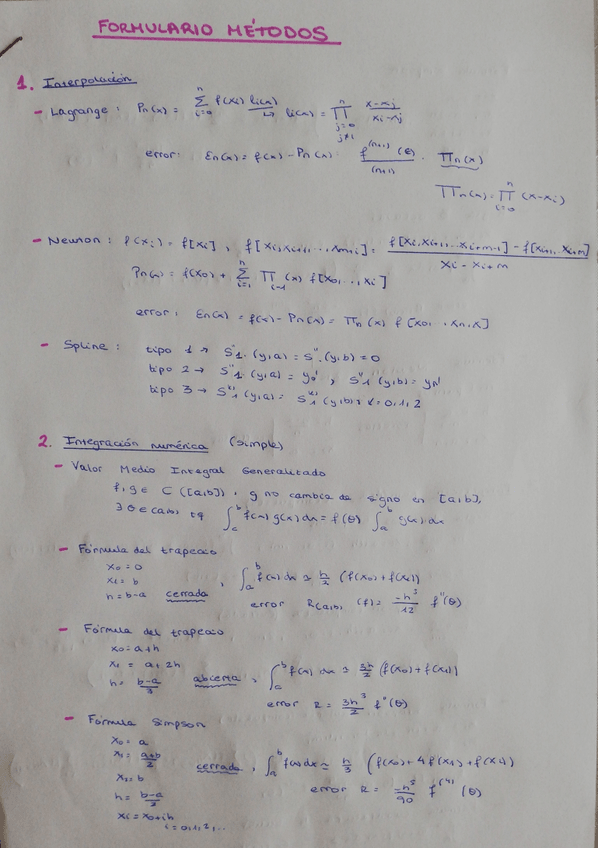 FORMULARIO MÉTODOS
1. Interpolación
- Lagrange: Pn(x) = ∑_{i=0}^{n} f(xi) li(x) ↳ li(x) = ∏_{j=0, j≠i}^{n} (x-xj)/(xi-xj)
error: En(x) = f(x) - Pn(x) = f^(n+1)(θ)/(n+1) · ∏n(x)
∏n(x) = ∏_{i=0}^{n} (x-xi)
- Newton: f(xi) = f[xi], f[xi,xi+1,...,xm+i] = (f[xi,xi+1,...,xi+m-1] - f[xi+1,...,xi+m])/(xi - xi+m)
Pn(x) = f(x0) + ∑_{i=1}^{n} ∏_{i-1}(x) f[x0,...,xi]
error: En(x) = f(x) - Pn(x) = ∏n(x) f[x0,...,xn,x]
- Spline: tipo 1 → S''1·(y,a) = S''·(y,b) = 0
tipo 2 → S''1·(y,a) = y0', S''1(y,b) = yn'
tipo 3 → S^(k)1(y,a) = S^(k)1(y,b), k = 0,1,2
2. Integración numérica (simple)
- Valor Medio Integral Generalizado
f,g ∈ C([a,b]), g no cambia de signo en [a,b],
∃ θ ∈ (a,b) tq ∫_a^b f(x) g(x) dx = f(θ) ∫_a^b g(x) dx
- Fórmula del trapecio
x0 = 0
x1 = b
h = b-a cerrada, ∫_a^b f(x) dx ≃ h/2 (f(x0) + f(x1))
error R(a,b)(f) = -h³/12 f''(θ)
- Fórmula del trapecio
x0 = a+h
x1 = a+2h
h = (b-a)/3 abierta, ∫_a^b f(x) dx ≃ 3h/2 (f(x0) + f(x1))
error R = 3h³/2 f''(θ)
- Fórmula Simpson
x0 = a
x1 = (a+b)/2
cerrada, ∫_a^b f(x) dx ≃ h/3 (f(x0) + 4f(x1) + f(x2))
x2 = b
error R = -h⁵/90 f^(4)(θ)
h = (b-a)/2
xi = x0+ih
i = 0,1,2,..